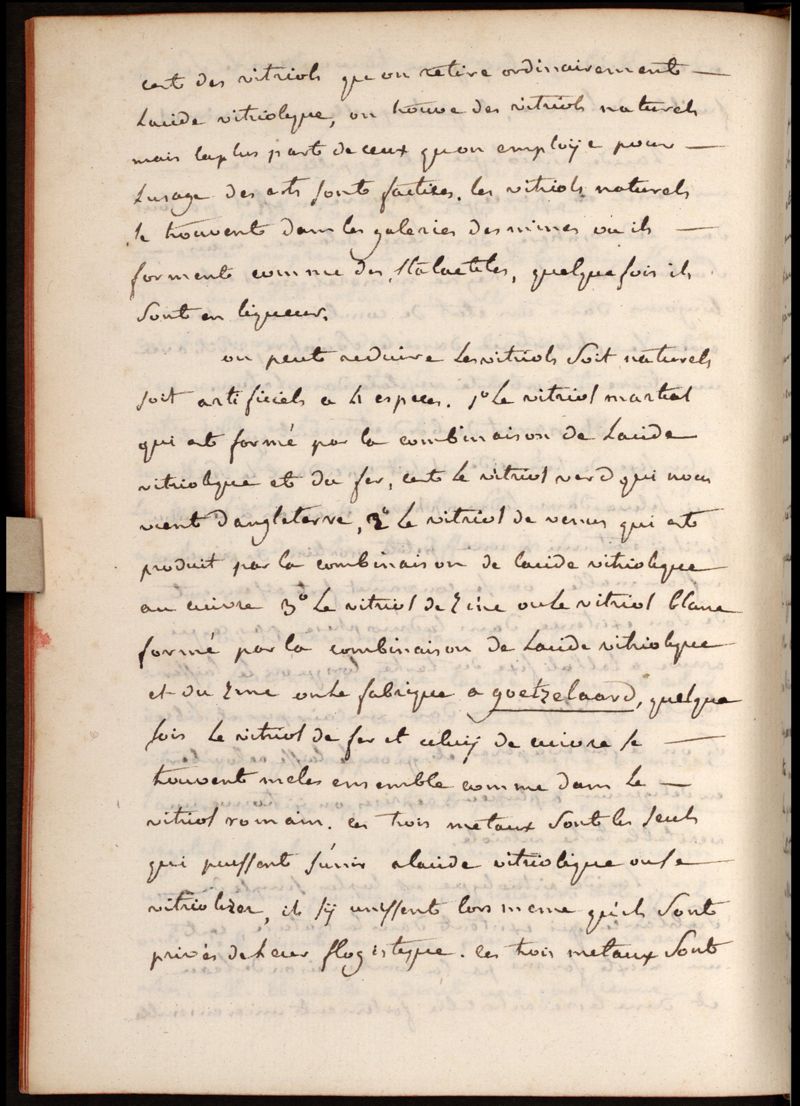 cest des vitriols quon retire ordinairement —
Lacide vitriolique, on trouve des vitriols naturels
mais laplus part de ceux quon employe pour —
Lusage des arts sont factices. les vitriols naturels
se trouvent dans les galeries des mines ou ils —
forment comme des stalactites, quelquefois ils
sont en liqueur.
on peut reduire les vitriols soit naturels
soit artificiels a 4 especes. 1º Le vitriol martial
qui est formé par la combinaison de Lacide
vitriolique et du fer, cest le vitriol verd qui nous
vient dangleterre, 2º Le vitriol de venus qui est
produit par la combinaison de lacide vitriolique
au cuivre 3º Le vitriol de Zinc ou Le vitriol blanc
formé par la combinaison de Lacide vitriolique
et du Zinc on Le fabrique a goetzelaard, quelque
fois Le vitriol de fer et celuy de cuivre se —
trouvent meles ensemble comme dans Le —
vitriol romain. ces trois metaux sont les seuls
qui puissent s'unir alacide vitriolique ou se —
vitriolizer, ils sÿ unissent lors meme qu'ils sont
privés de Leur flogistique. ces trois metaux sont